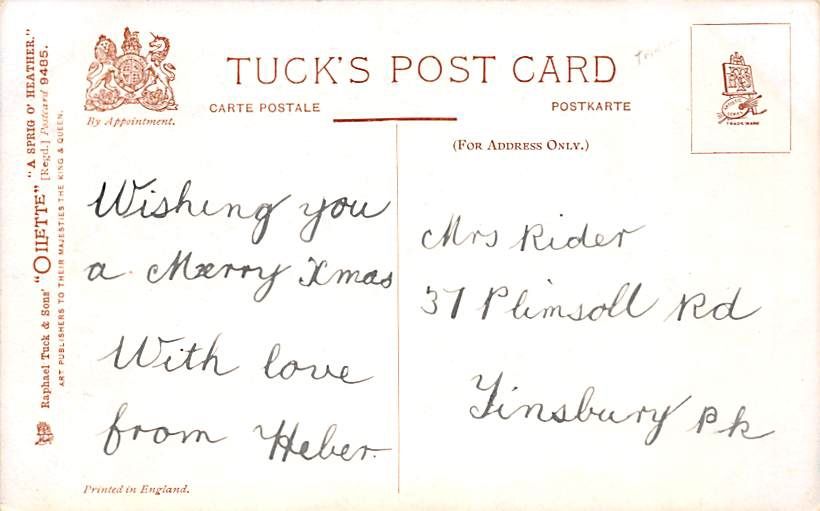 Raphael Tuck & Sons' "OILETTE" "A SPRIG O' HEATHER."
[Regd.] Postcard 9485.
ART PUBLISHERS TO THEIR MAJESTIES THE KING & QUEEN.
By Appointment.
TUCK'S POST CARD
CARTE POSTALE
POSTKARTE
(FOR ADDRESS ONLY.)
TRADE MARK
Wishing you
a Merry Xmas
With love
from Heber.
Mrs Rider
37 Plimsoll Rd
Finsbury Pk
Printed in England.